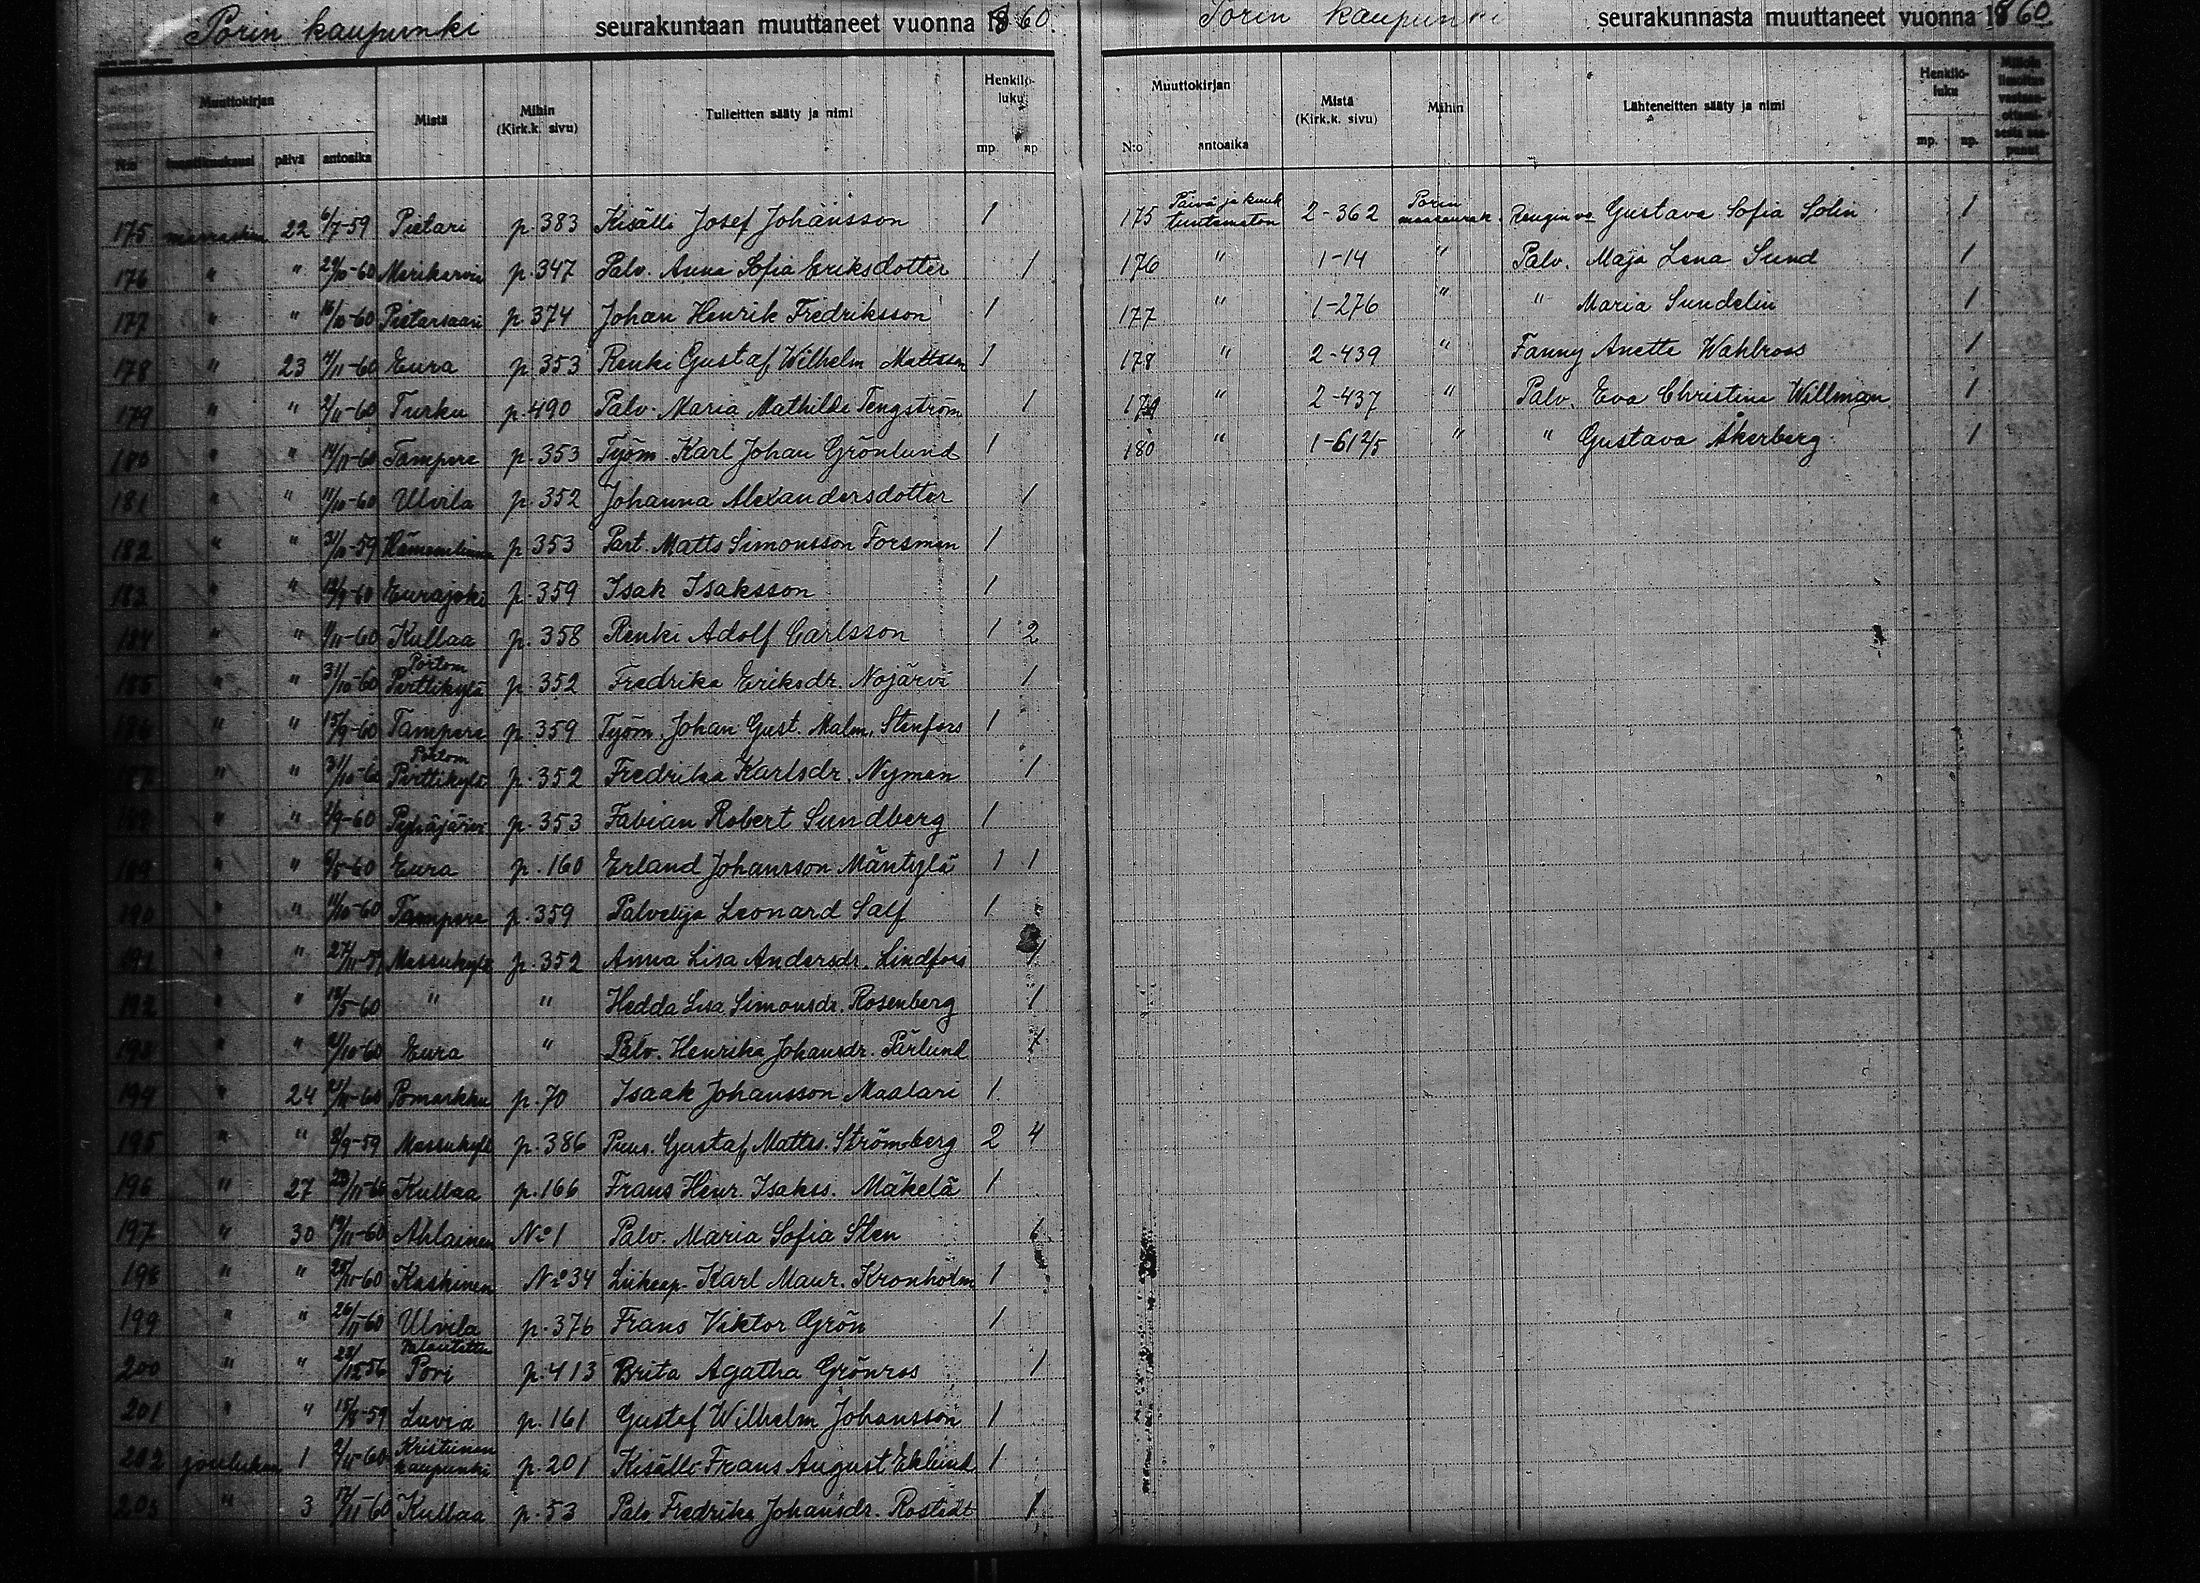 Porin kaupunki seurakuntaan muuttaneet vuonna 1860.
Muuttokirjan Mistä Mihin (Kirk.k. sivu) Tulleitten sääty ja nimi Henkilö-luku
N:o päivä antoaika mp. np
175 marraskuu 22 6/7-59 Pietari p. 383 Kisälli Josef Johansson 1
176 " " 29/10-60 Merikarvia p. 347 Palv. Anna Sofia Eriksdotter 1
177 " " 16/10-60 Pietarsaari p. 374 Johan Henrik Fredriksson 1
178 " 23 7/11-60 Eura p. 353 Renki Gustaf Wilhelm Mattsson 1
179 " " 2/11-60 Turku p. 490 Palv. Maria Mathilda Tengström 1
180 " " 14/11-60 Tampere p. 353 Työm. Karl Johan Grönlund 1
181 " " 11/10-60 Ulvila p. 352 Johanna Alexandersdotter 1
182 " " 31/10-59 Hämeenlinna p. 353 Part. Matts Simonsson Forsman 1
183 " " Eurajoki p. 359 Isak Isaksson 1
184 " " 9/11-60 Kullaa p. 358 Renki Adolf Carlsson 1 2
185 " " 31/10-60 Portom Pirttikylä p. 352 Fredrika Eriksdr. Nojärvi 1
186 " " 15/9-60 Tampere p. 359 Työm. Johan Gust. Malm. Stenfors 1
187 " " 31/10-60 Portom Pirttikylä p. 352 Fredrika Karlsdr. Nyman 1
188 " " Pyhäjärvi p. 353 Fabian Robert Sundberg 1
189 " " Eura p. 160 Erland Johansson Mäntylä 1 1
190 " " 11/10-60 Tampere p. 359 Palvelija Leonard Salf 1
191 " " 27/11-59 Messukylä p. 352 Anna Lisa Andersdr. Lindfors 1
192 " " " " Hedda Lisa Simonsdr. Rosenberg 1
193 " " Eura " Palv. Henrika Johansdr. Pärlund 1
194 " 24 Pomarkku p. 70 Isaak Johansson Maalari 1
195 " " 3/9-59 Messukylä p. 386 Puus. Gustaf Mattss. Strömberg 2 4
196 " 27 23/11-60 Kullaa p. 166 Frans Henr. Isakss. Mäkelä 1
197 " 30 19/11-60 Ahlainen No 1 Palv. Maria Sofia Sten
198 " " 25/11-60 Kaskinen No 34 Liikeap. Karl Maur. Kronholm 1
199 " " 26/11-60 Ulvila p. 376 Frans Viktor Grön 1
200 " " 23/12 56 Palautettu Pori p. 413 Brita Agatha Grönros 1
201 " " 15/8-59 Luvia p. 161 Gustaf Wilhelm Johansson 1
202 jouluku 1 2/11-60 Kristiinan kaupunki p. 201 Kisälli Frans August Eklund 1
203 " 3 17/11-60 Kullaa p. 53 Palv. Fredrika Johansdr. Rostedt 1
Porin kaupunki seurakunnasta muuttaneet vuonna 1860.
Muuttokirjan Mistä (Kirk.k. sivu) Mihin Lähteneitten sääty ja nimi Henkilö-luku
N:o antoaika mp. np.
175 Päivä ja kuuk tuntematon 2-362 Porin maaseurak. Rengin va Gustava Sofia Solin 1
176 " 1-14 " Palv. Maja Lena Sund 1
177 " 1-276 " " Maria Sundelin 1
178 " 2-439 " Fanny Anette Wahlroos 1
179 " 2-437 " Palv. Eva Christina Willman 1
180 " 1-612/5 " " Gustava Åkerberg 1